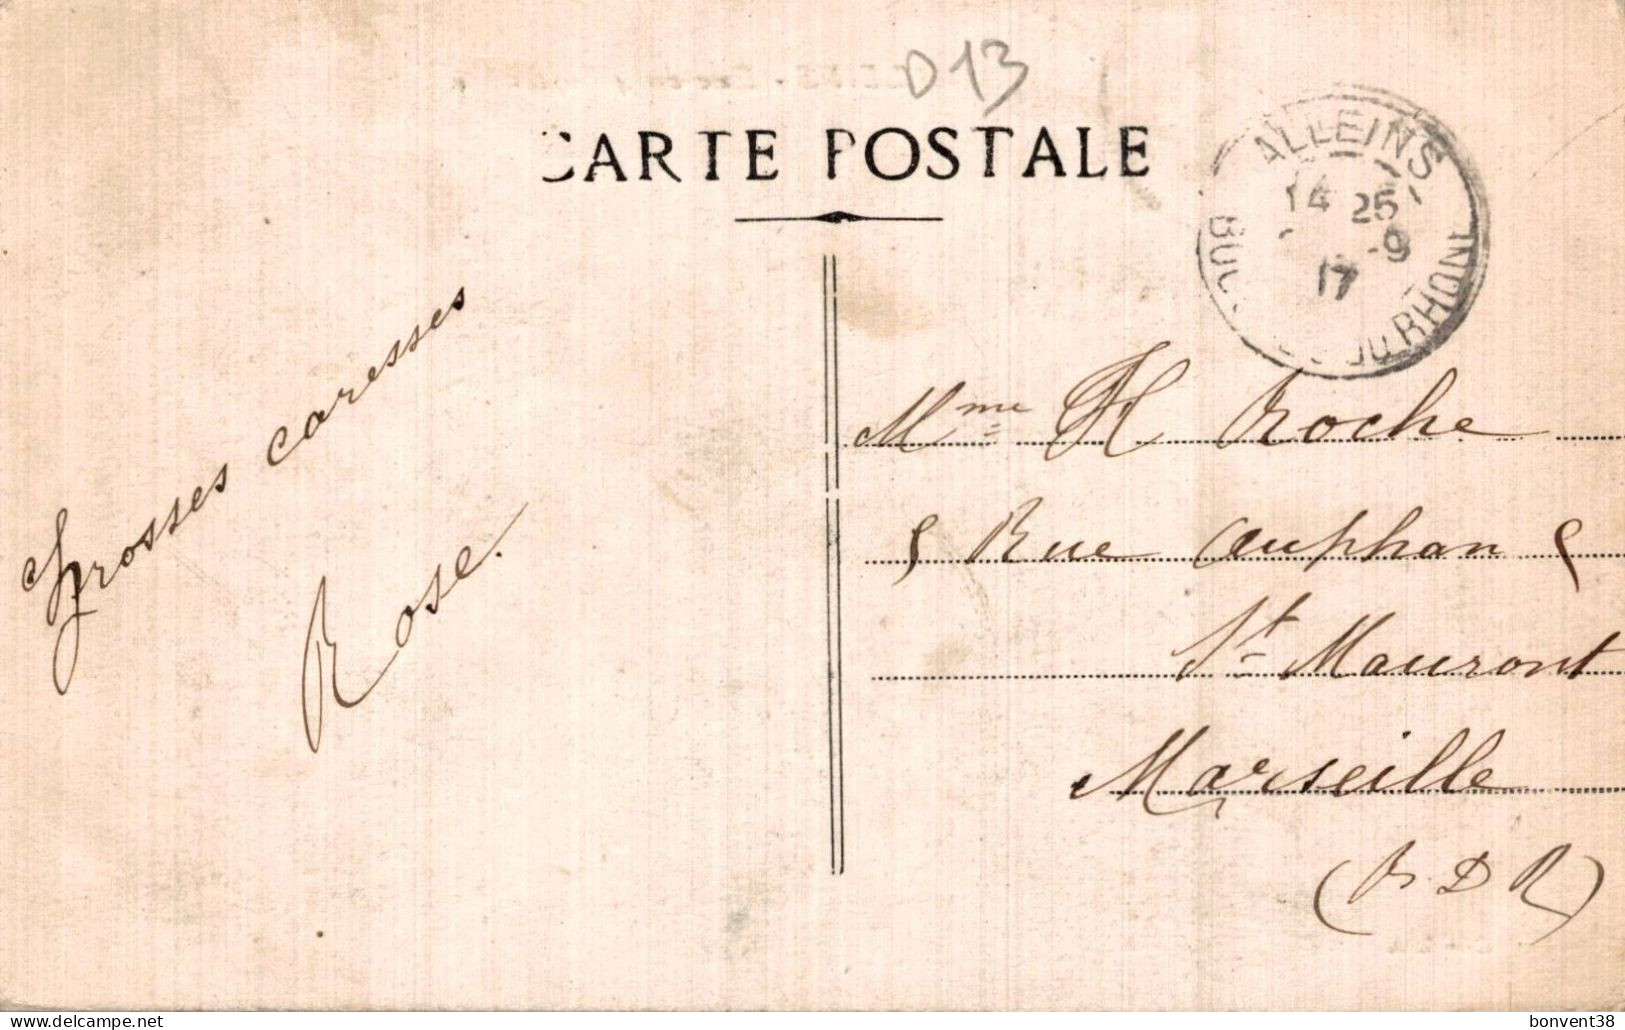 D13
CARTE POSTALE
ALLEINS
14 25
-9
17
BOUCHES DU RHONE
Grosses caresses
Rose.
Mme H Roche
5 Rue Auphan 5
St Mauront
Marseille
(B. D R)
bonvent38